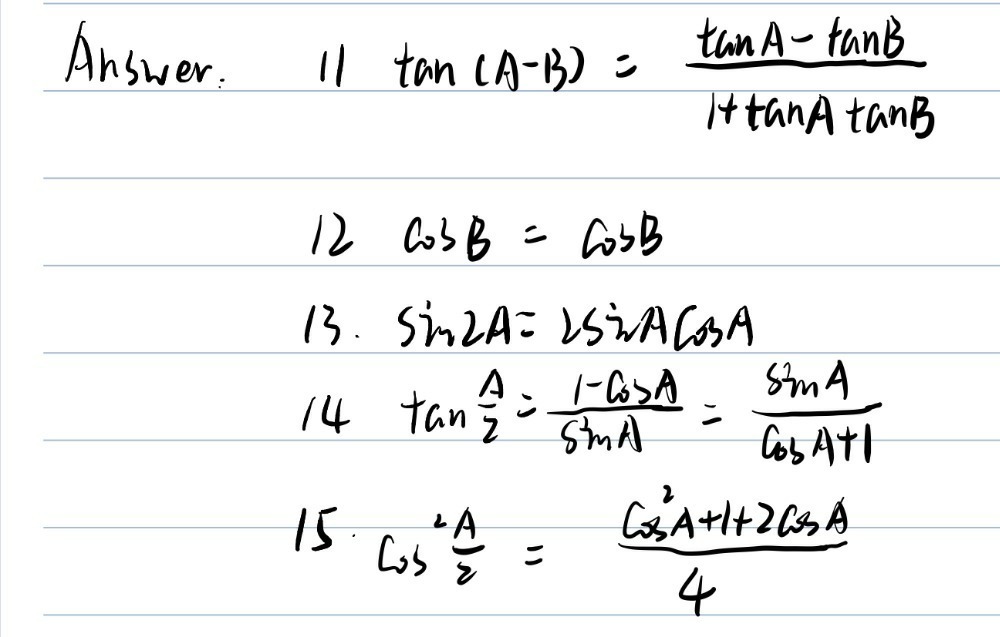 Answer. 11 tan (A-B) = \frac{tanA - tanB}{1+tanA tanB}
12 cosB = cosB
13. sin2A = 2sinAcosA
14 tan \frac{A}{2} = \frac{1-cosA}{sinA} = \frac{sinA}{cosA+1}
15. cos^2 \frac{A}{2} = \frac{cos^2A+1+2cosA}{4}